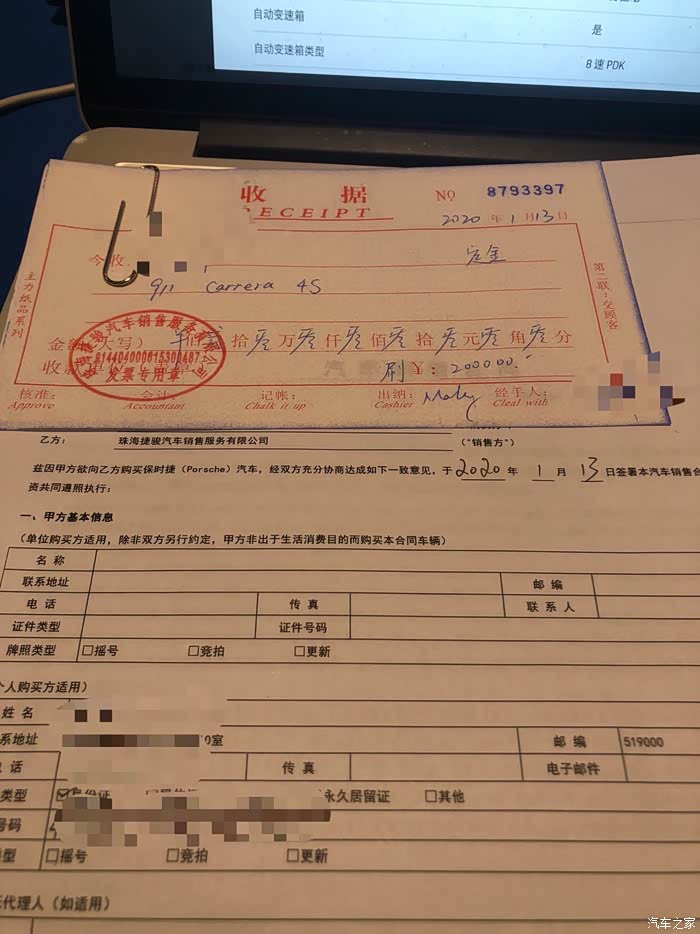 自动变速箱
是
自动变速箱类型
8 速 PDK
收 据
RECEIPT
№ 8793397
2020 年 1 月 13 日
今收 定金
911 Carrera 4S
主力纸品系列
第二联:交顾客
拾零万零仟零佰零拾零元零角零分
刷 ¥:200000.
海捷骏汽车销售服务有限公司
发票专用章
核准: 会计: 记帐: 出纳: 经手人:
Approve Accountant Chalk it up Cashier Cleal with
乙方: 珠海捷骏汽车销售服务有限公司 (“销售方”)
兹因甲方欲向乙方购买保时捷(Porsche)汽车,经双方充分协商达成如下一致意见,于 2020 年 1 月 13 日签署本汽车销售合
资共同遵照执行:
一、甲方基本信息
(单位购买方适用,除非双方另行约定,甲方非出于生活消费目的而购买本合同车辆)
名 称
联系地址 邮 编
电 话 传 真 联 系 人
证件类型 证件号码
牌照类型 □摇号 □竞拍 □更新
个人购买方适用)
姓 名
系地址 室 邮 编 519000
话 传 真 电子邮件
类型 身份证 永久居留证 □其他
号码
型 □摇号 □竞拍 □更新
代理人(如适用)
汽车之家